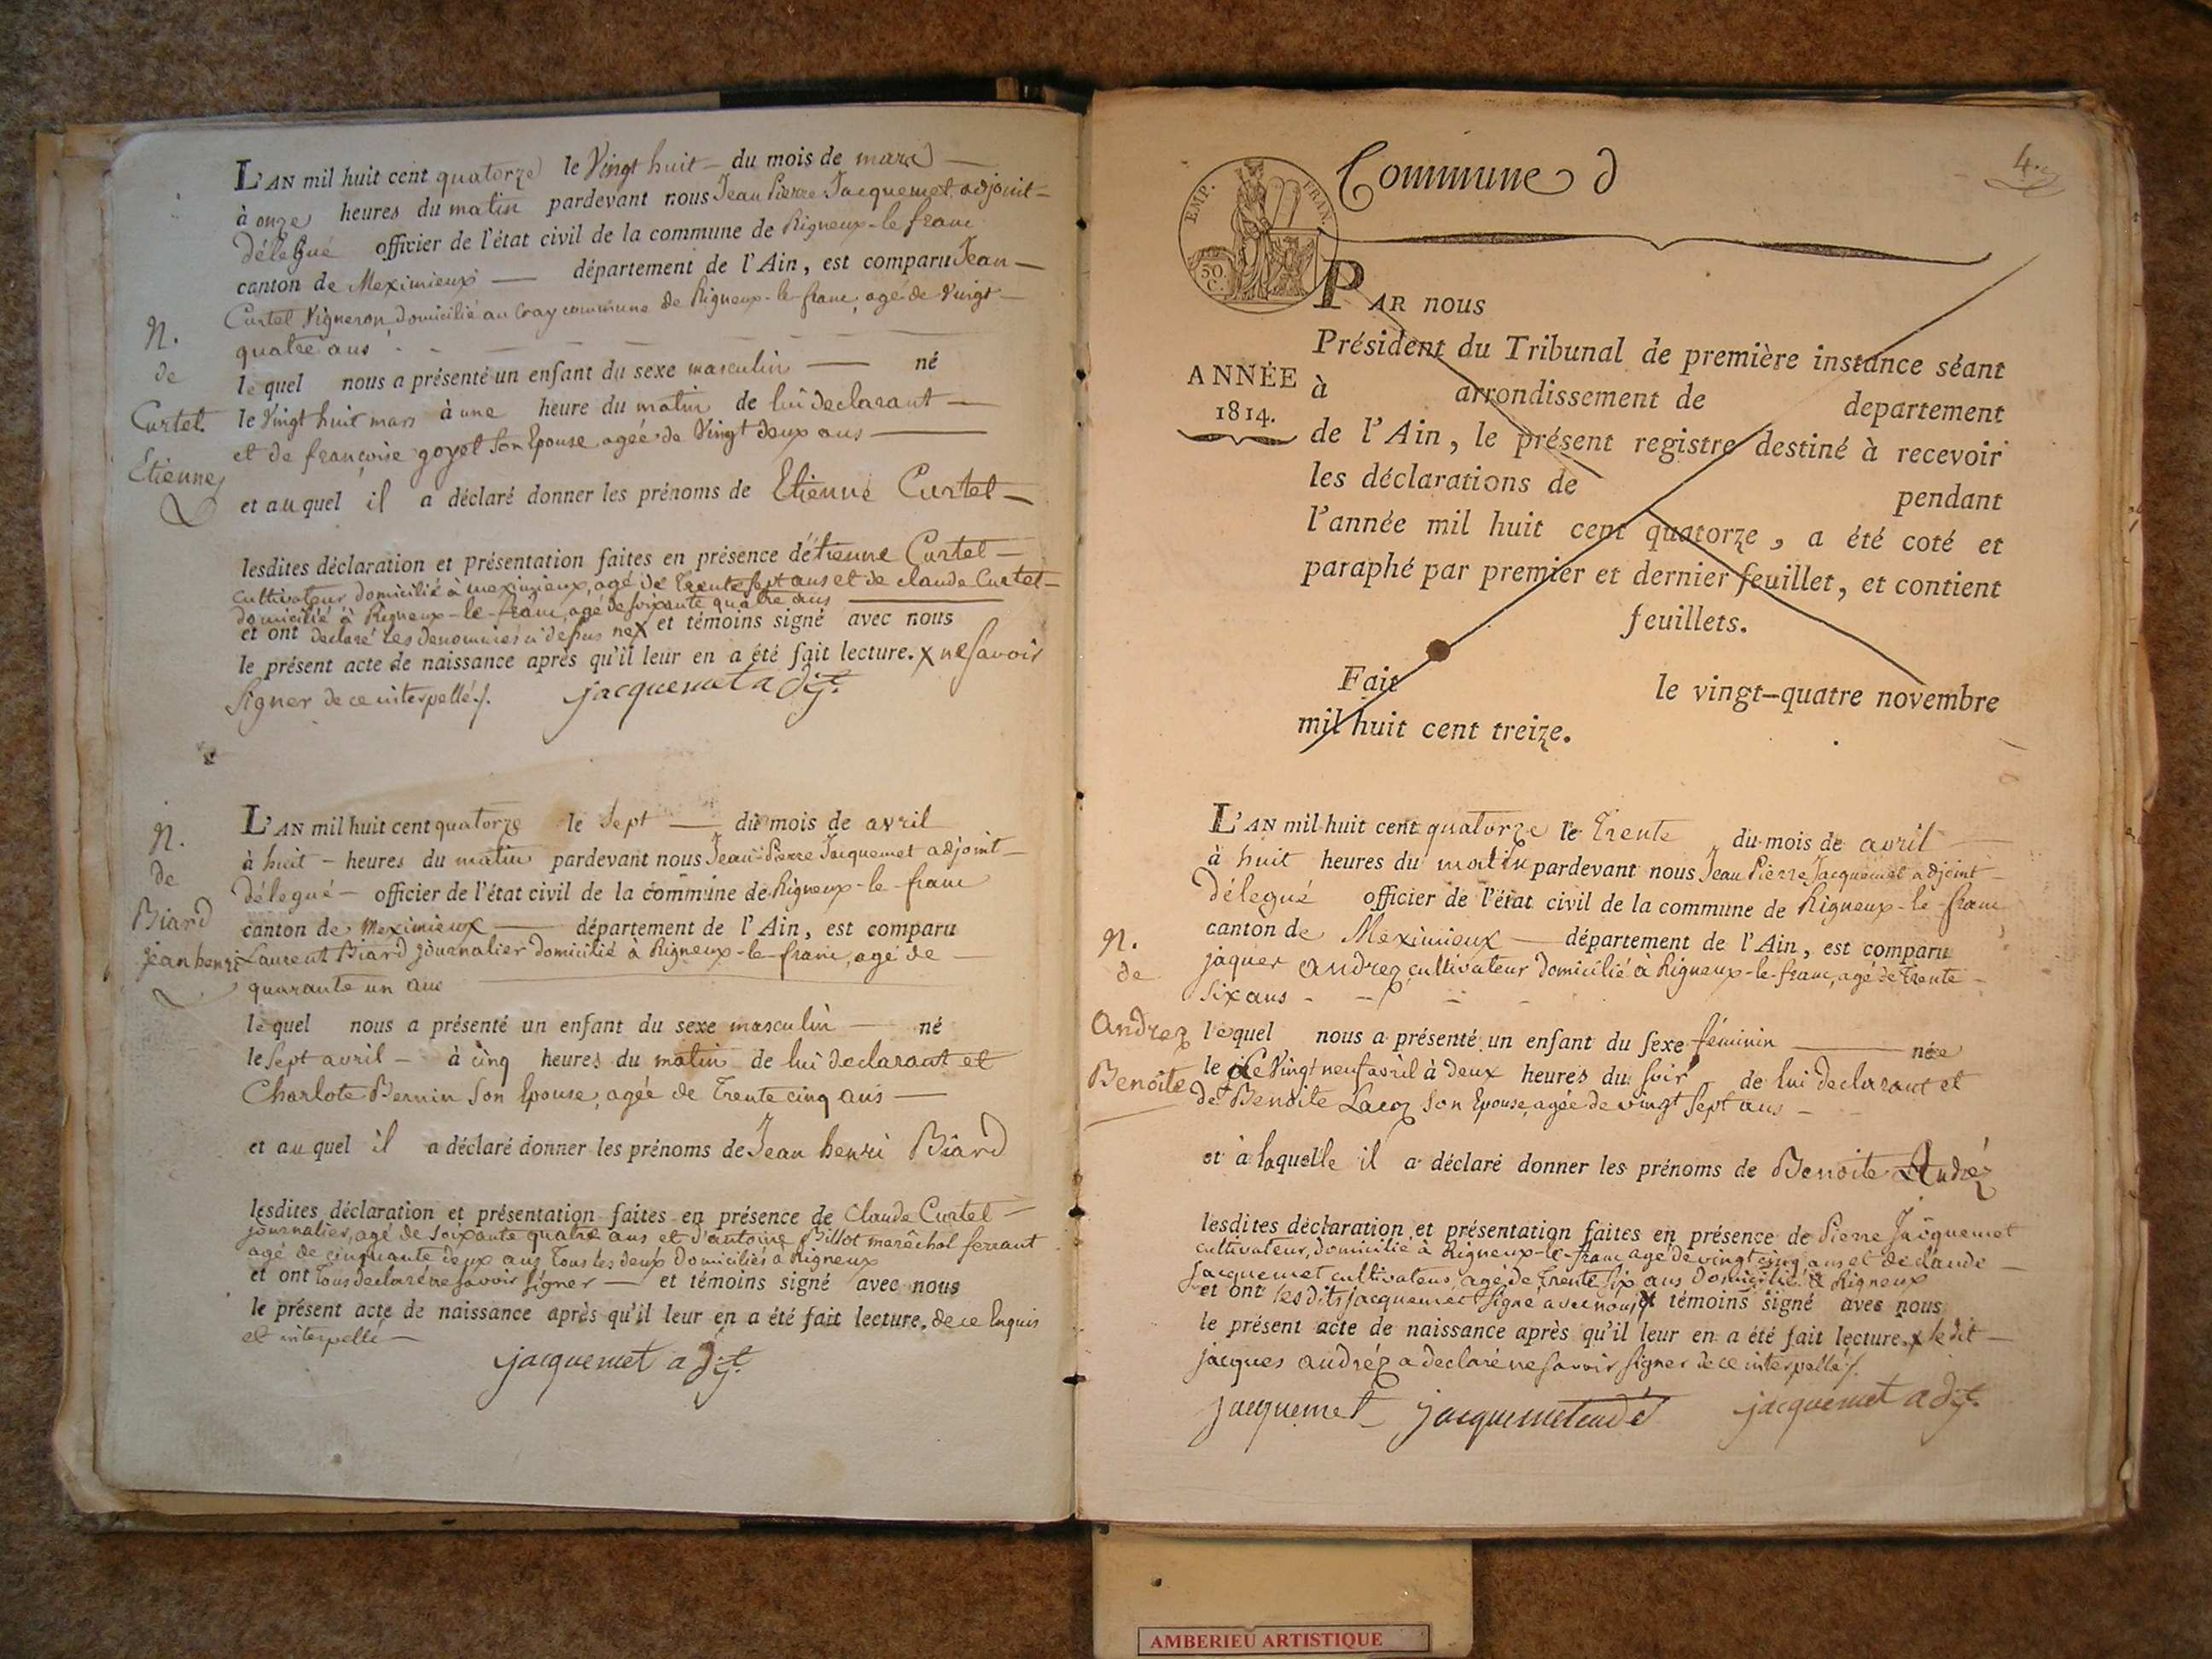 L'AN mil huit cent quatorze le Vingt huit du mois de mars
à onze heures du matin pardevant nous Jean Pierre Jacquemet adjoint
délégué officier de l'état civil de la commune de Rigneux-le-franc
canton de Meximieux département de l'Ain, est comparu Jean
Curtel Vigneron domicilié au Cray commune de Rigneux-le-franc, agé de Vingt
quatre ans
N.
de
Curtet
Etienne
le quel nous a présenté un enfant du sexe masculin né
le Vingt huit mars à une heure du matin de lui declarant
et de françoise goyet son Epouse agée de Vingt deux ans
et au quel il a déclaré donner les prénoms de Etienne Curtet
lesdites déclaration et présentation faites en présence d'étienne Curtet
cultivateur domicilié à meximieux, agé de trente sept ans et de claude Curtet
domicilié à Rigneux-le-franc, agé de soixante quatre ans
et ont declaré les denommés ci dessus ne x et témoins signé avec nous
le présent acte de naissance après qu'il leur en a été fait lecture. x ne savoir
signer de ce interpellés/.
jacquemet adjt.
L'AN mil huit cent quatorze le Sept du mois de avril
à huit heures du matin pardevant nous Jean-Pierre Jacquemet adjoint
délegué officier de l'état civil de la commune de Rigneux-le-franc
canton de Meximieux département de l'Ain, est comparu
Laurent Biard Journalier domicilié à Rigneux-le-franc, agé de
quarante un ans
N.
de
Biard
jean henri
le quel nous a présenté un enfant du sexe masculin né
le Sept avril à cinq heures du matin de lui declarant et
Charlote Bernin son Epouse, agée de trente cinq ans
et au quel il a déclaré donner les prénoms de Jean henri Biard
lesdites déclaration et présentation faites en présence de Claude Curtet
journalier, agé de soixante quatre ans et d'antoine Billot maréchal ferrant
agé de cinquante deux ans tous les deux domiciliés à Rigneux
et ont tous declaré ne savoir signer et témoins signé avec nous
le présent acte de naissance après qu'il leur en a été fait lecture. de ce Enquis
et interpellé
jacquemet adjt.
4.
Commune d
EMP. FRAN.
50 C.
PAR nous
Président du Tribunal de première instance séant
ANNÉE
1814.
à arrondissement de departement
de l'Ain, le présent registre destiné à recevoir
les déclarations de pendant
l'année mil huit cent quatorze, a été coté et
paraphé par premier et dernier feuillet, et contient
feuillets.
Fait le vingt-quatre novembre
mil huit cent treize.
L'AN mil huit cent quatorze le trente du mois de avril
à huit heures du matin pardevant nous Jean Pierre Jacquemet adjoint
délegué officier de l'état civil de la commune de Rigneux-le-franc
canton de Meximieux département de l'Ain, est comparu
jaques andrez cultivateur domicilié à Rigneux-le-franc, agé de trente
six ans
N.
de
andrez
Benoite
lequel nous a présenté un enfant du sexe féminin née
le Vingt neuf avril à deux heures du soir de lui declarant et
de Benoite Lacoz son Epouse, agée de vingt sept ans
et à laquelle il a déclaré donner les prénoms de Benoite André
lesdites déclaration et présentation faites en présence de Pierre Jacquemet
cultivateur, domicilié à Rigneux-le-franc agé de vingt cinq ans et de claude
Jacquemet cultivateur, agé de trente six ans domicilié à Rigneux
et ont les dits jacquemet signé avec nous x témoins signé avec nous
le présent acte de naissance après qu'il leur en a été fait lecture. x le dit
jacques andréz a declaré ne savoir signer de ce interpellé/.
jacquemet jacquemet cadet jacquemet adjt.
AMBERIEU ARTISTIQUE